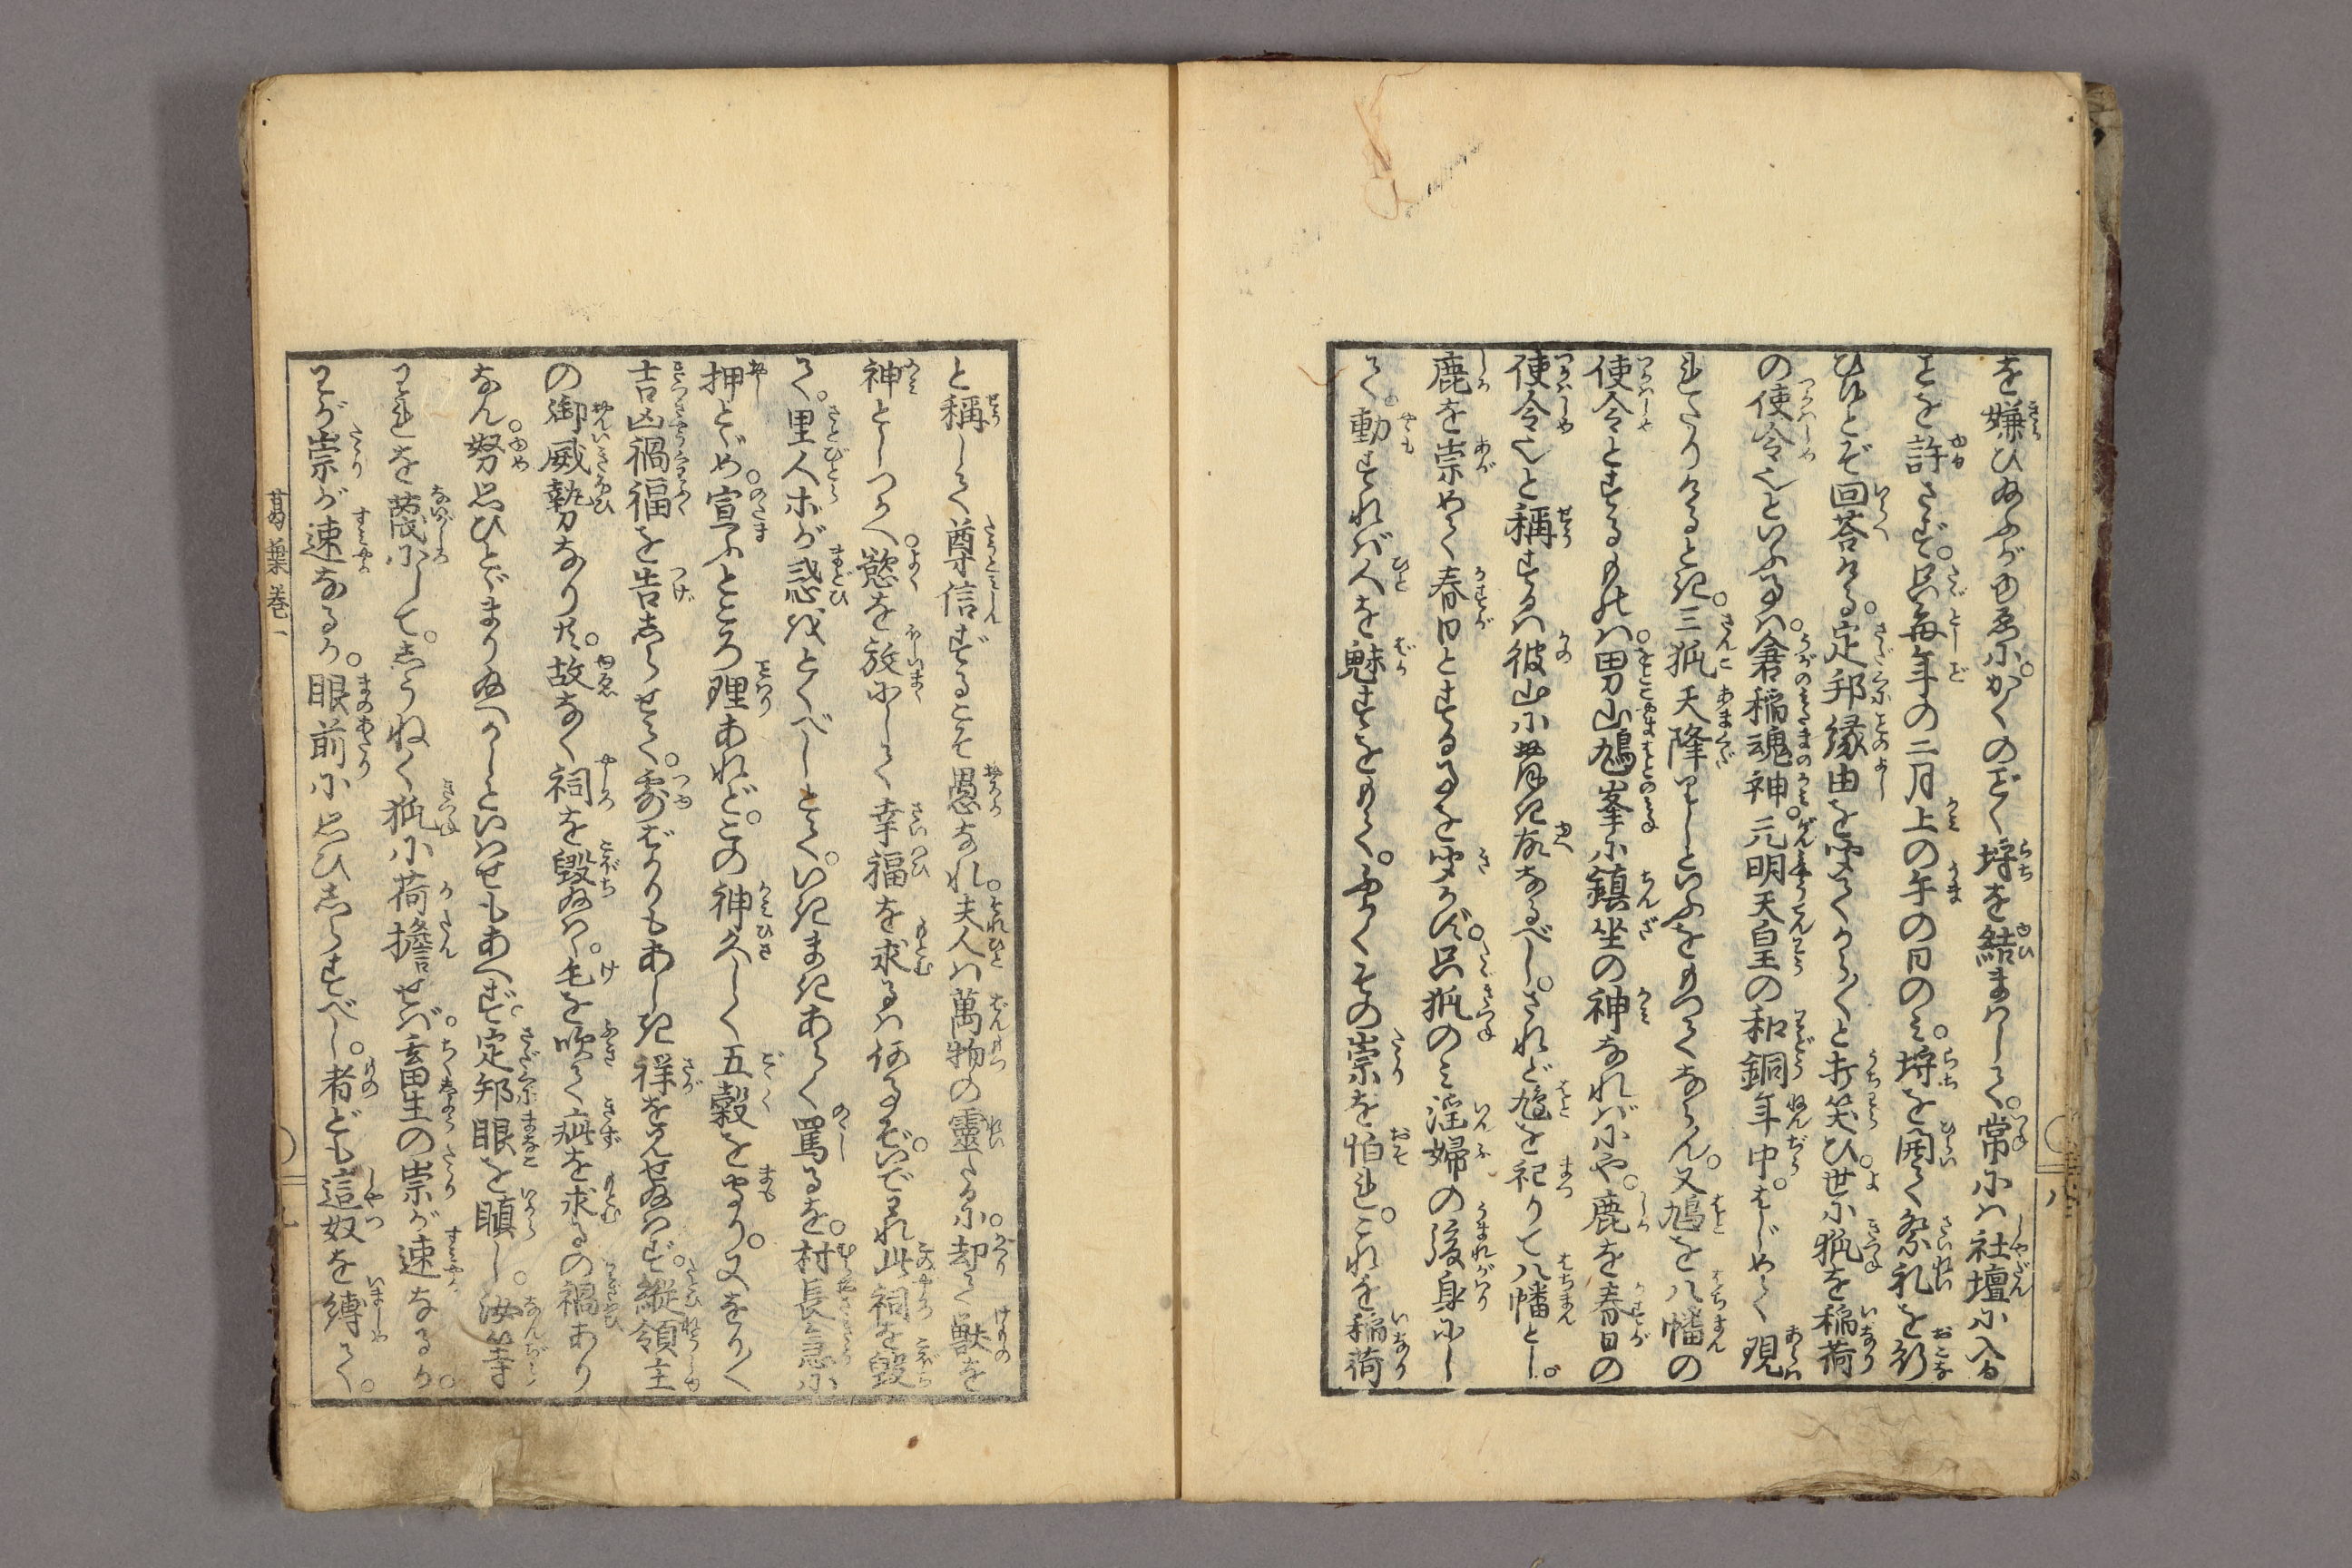 を嫌ひ給ふがゆゑに。かくのごく埒を結まはして。常には社壇に入る
ことを許さず。只毎年の二月上の午の日のみ。埒を開て祭礼を行
ひ候とぞ回答ける。定邦縁由を聞てから〳〵と打笑ひ。世に狐を稲荷
の使令也といふ事は。倉稲魂神。元明天皇の和銅年中。はじめて現
れたりけるとき。三狐天降りしといふをもつてならん。又鳩を八幡の
使令とするものは。男山鳩峯に鎮坐の神なればにや。鹿を春日の
使令也と稱するは彼山に多き故なるべし。されど鳩を祀りて八幡とし。
鹿を崇めて春日とする事を聞かず。只狐のみ淫婦の後身にし
て。動すれば人を魅すをもて。ふかくその祟を怕れ。これを稲荷
と稱して尊信ずるこそ愚なれ。夫人は萬物の靈たるに。却て獣を
神としつかへ。慾を放にして幸福を求るは何事ぞ。いでわれ此祠を毀
て。里人ホが惑をとくべしとて。いきまきあらく罵るを。村長急に
押とゞめ。宣ふところ理あれど。この神久しく五穀を守り。又をり〳〵
吉凶禍福を告しらせて。露ばかりもあしき祥を見せ給はず。縦領主
の御威勢なりとも。故なく祠を毀給はゞ。毛を吹て疵を求るの禍あり
なん。努思ひとゞまり給へかしといはせもあへず。定邦眼を瞋し。汝等
われを蔑にして。しうねく狐に荷擔せば。畜生の祟が速なるか。
わが祟が速なるか。眼前に思ひしらすべし。者ども這奴を縛て。
葛葉巻一
八
九